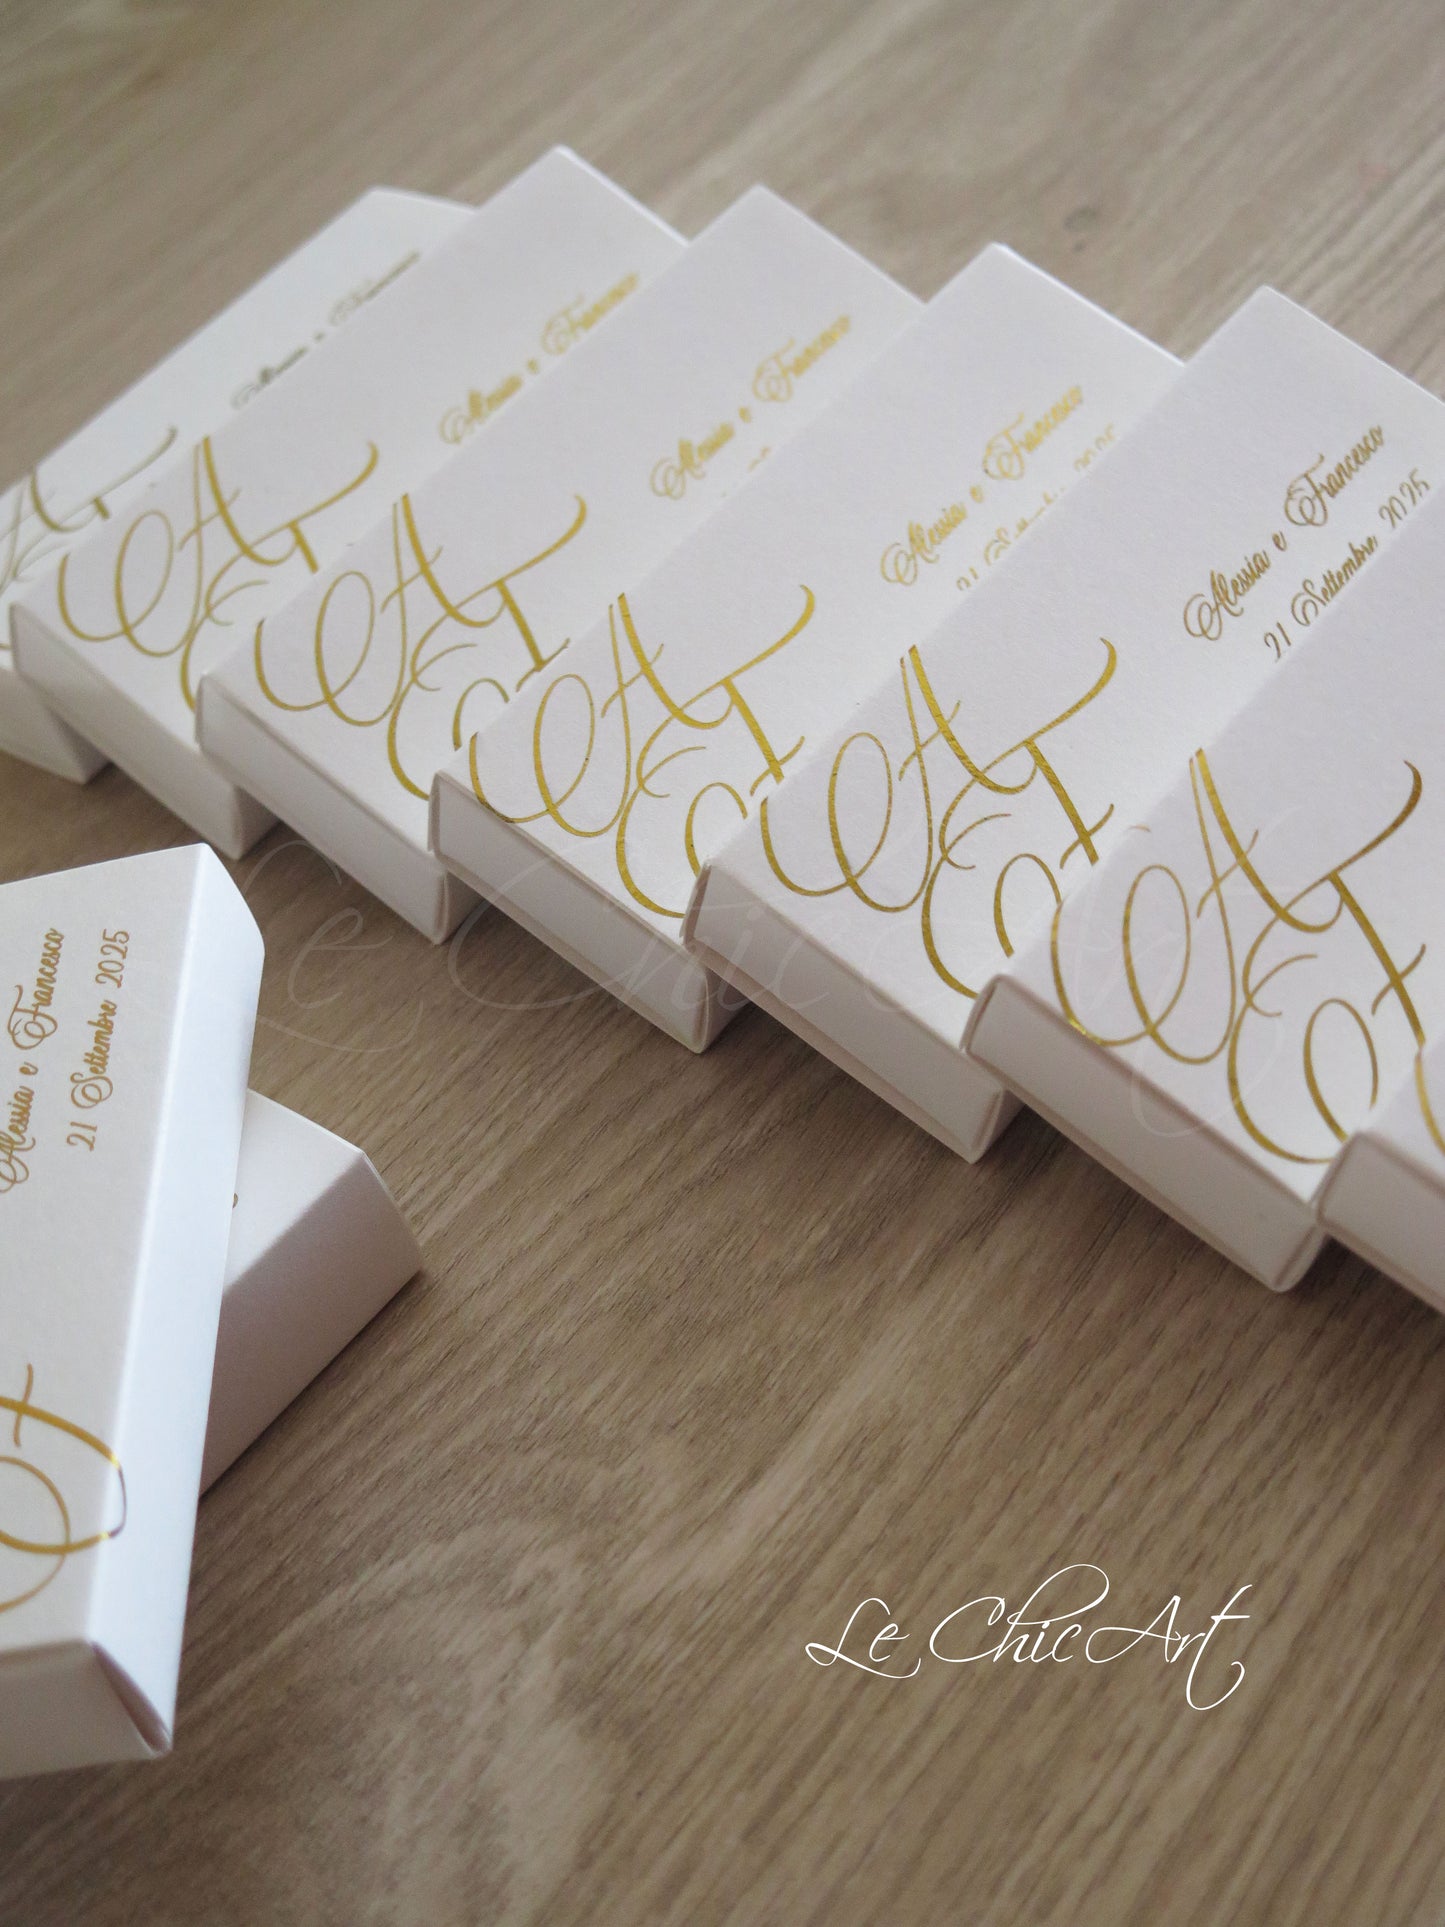 Alessia e Francesco
Alessia e Francesco
Alessia e Francesco
Alessia e Francesco
21
2025
Alessia e Francesco
21 Settembre 2025
AF
AF
AF
AF
AF
AF
Alessia e Francesco
21 Settembre 2025
Le Chic Art
Le Chic Art